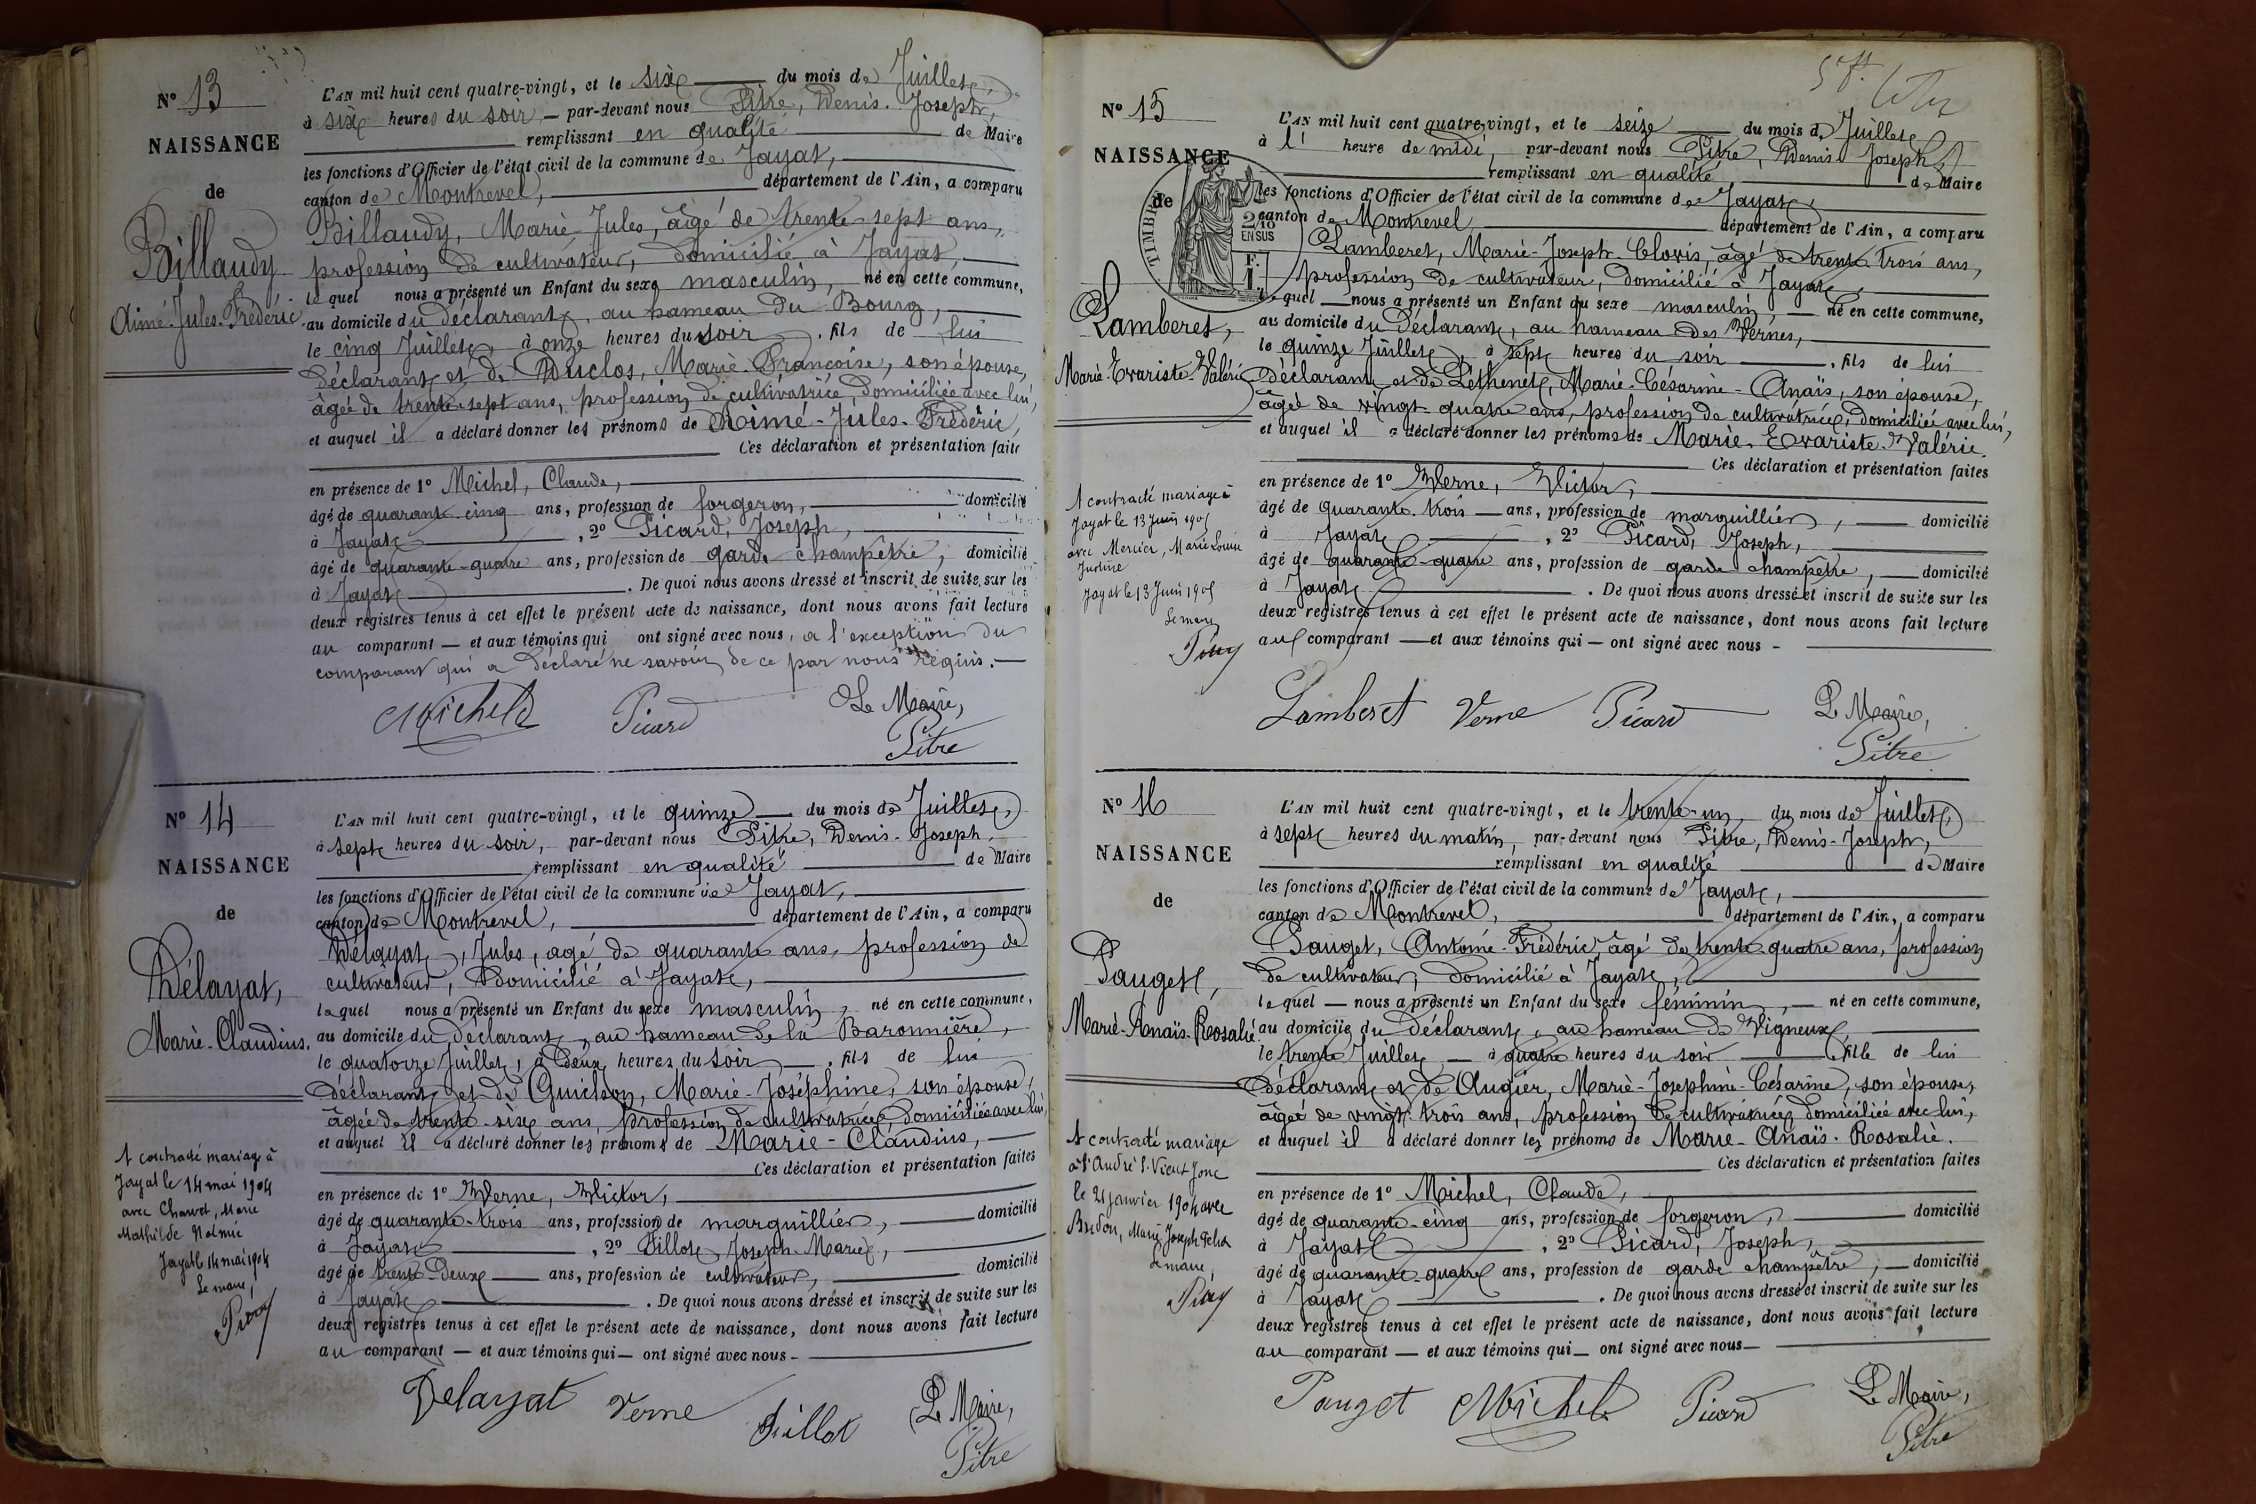 N° 13
NAISSANCE
de
Billaudy
Aimé-Jules-Frédéric
L'AN mil huit cent quatre-vingt, et le six du mois de Juillet,
à six heures du soir, par-devant nous Pitre, Denis-Joseph,
remplissant en qualité de Maire
les fonctions d'Officier de l'état civil de la commune de Jayat,
canton de Montrevel, département de l'Ain, a comparu
Billaudy, Marie-Jules, âgé de trente-sept ans,
profession de cultivateur, domicilié à Jayat,
lequel nous a présenté un Enfant du sexe masculin, né en cette commune,
au domicile du déclarant, au hameau du Bourg,
le cinq Juillet, à onze heures du soir, fils de lui
déclarant et de Duclos, Marie-Françoise, son épouse,
âgée de trente-sept ans, profession de cultivatrice, domiciliée avec lui,
et auquel il a déclaré donner les prénoms de Aimé-Jules-Frédéric,
Ces déclaration et présentation faites
en présence de 1° Michel, Claude,
âgé de quarante-cinq ans, profession de forgeron, domicilié
à Jayat, 2° Picard, Joseph,
âgé de quarante-quatre ans, profession de garde champêtre, domicilié
à Jayat. De quoi nous avons dressé et inscrit de suite sur les
deux registres tenus à cet effet le présent acte de naissance, dont nous avons fait lecture
au comparant — et aux témoins qui ont signé avec nous, à l'exception du
comparant qui a déclaré ne savoir de ce par nous requis.
Michel Picard Le Maire,
Pitre
N° 14
NAISSANCE
de
Délayat,
Marie-Claudius.
A contracté mariage à
Jayat le 14 mai 1904
avec Chanel, Marie
Mathilde
Jayat le 14 mai 1904
Le maire,
L'AN mil huit cent quatre-vingt, et le quinze du mois de Juillet,
à sept heures du soir, par-devant nous Pitre, Denis-Joseph,
remplissant en qualité de Maire
les fonctions d'Officier de l'état civil de la commune de Jayat,
canton de Montrevel, département de l'Ain, a comparu
Délayat, Jules, âgé de quarante ans, profession de
cultivateur, domicilié à Jayat,
lequel nous a présenté un Enfant du sexe masculin, né en cette commune,
au domicile du déclarant, au hameau de la Baronnière,
le quatorze Juillet, à deux heures du soir, fils de lui
déclarant et de Guichon, Marie-Joséphine, son épouse,
âgée de trente-six ans, profession de cultivatrice, domiciliée avec lui,
et auquel il a déclaré donner les prénoms de Marie-Claudius,
Ces déclaration et présentation faites
en présence de 1° Verne, Victor,
âgé de quarante-trois ans, profession de marguillier, domicilié
à Jayat, 2° Pillot, Joseph-Marie,
âgé de trente-deux ans, profession de cultivateur, domicilié
à Jayat. De quoi nous avons dressé et inscrit de suite sur les
deux registres tenus à cet effet le présent acte de naissance, dont nous avons fait lecture
au comparant — et aux témoins qui — ont signé avec nous
Delayat Verne Pillot Le Maire,
Pitre
N° 15
NAISSANCE
de
TIMBRE
2/10
EN SUS
F.
1.
Lamberet,
Marie-Evariste-Valéric
A contracté mariage à
Jayat le 13 Juin 1905
avec Mercier, Marie Louise
Justine
Jayat le 13 Juin 1905
Le maire
L'AN mil huit cent quatre-vingt, et le seize du mois de Juillet
à l' heure de midi, par-devant nous Pitre, Denis-Joseph,
remplissant en qualité de Maire
les fonctions d'Officier de l'état civil de la commune de Jayat,
canton de Montrevel département de l'Ain, a comparu
Lamberet, Marie-Joseph-Clovis, âgé de trente-trois ans,
profession de cultivateur, domicilié à Jayat,
lequel nous a présenté un Enfant du sexe masculin, né en cette commune,
au domicile du déclarant, au hameau des Vernes,
le quinze Juillet, à sept heures du soir, fils de lui
déclarant et de Léthenet, Marie-Césarine-Anaïs, son épouse,
âgée de vingt-quatre ans, profession de cultivatrice, domiciliée avec lui,
et auquel il a déclaré donner les prénoms de Marie-Evariste-Valéric.
Ces déclaration et présentation faites
en présence de 1° Verne, Victor,
âgé de quarante-trois ans, profession de marguillier, domicilié
à Jayat, 2° Picard, Joseph,
âgé de quarante-quatre ans, profession de garde champêtre, domicilié
à Jayat. De quoi nous avons dressé et inscrit de suite sur les
deux registres tenus à cet effet le présent acte de naissance, dont nous avons fait lecture
au comparant — et aux témoins qui — ont signé avec nous
Lamberet Verne Picard Le Maire,
Pitre
N° 16
NAISSANCE
de
Pauget,
Marie-Anaïs-Rosalie.
A contracté mariage
à St André-le-Vieux Jonc
le 21 janvier 1904 avec
Marie Joseph
Le maire,
L'AN mil huit cent quatre-vingt, et le trente-un du mois de Juillet,
à sept heures du matin, par-devant nous Pitre, Denis-Joseph,
remplissant en qualité de Maire
les fonctions d'Officier de l'état civil de la commune de Jayat,
canton de Montrevel, département de l'Ain, a comparu
Pauget, Antoine-Frédéric, âgé de trente-quatre ans, profession
de cultivateur, domicilié à Jayat,
lequel — nous a présenté un Enfant du sexe féminin, né en cette commune,
au domicile du déclarant, au hameau de Vigneux,
le trente Juillet, à quatre heures du soir, fille de lui
déclarant et de Augier, Marie-Josephine-Césarine, son épouse,
âgée de vingt-trois ans, profession de cultivatrice, domiciliée avec lui,
et auquel il a déclaré donner les prénoms de Marie-Anaïs-Rosalie.
Ces déclaration et présentation faites
en présence de 1° Michel, Claude,
âgé de quarante-cinq ans, profession de forgeron, domicilié
à Jayat, 2° Picard, Joseph,
âgé de quarante-quatre ans, profession de garde champêtre, domicilié
à Jayat. De quoi nous avons dressé et inscrit de suite sur les
deux registres tenus à cet effet le présent acte de naissance, dont nous avons fait lecture
au comparant — et aux témoins qui — ont signé avec nous
Pauget Michel Picard Le Maire,
Pitre